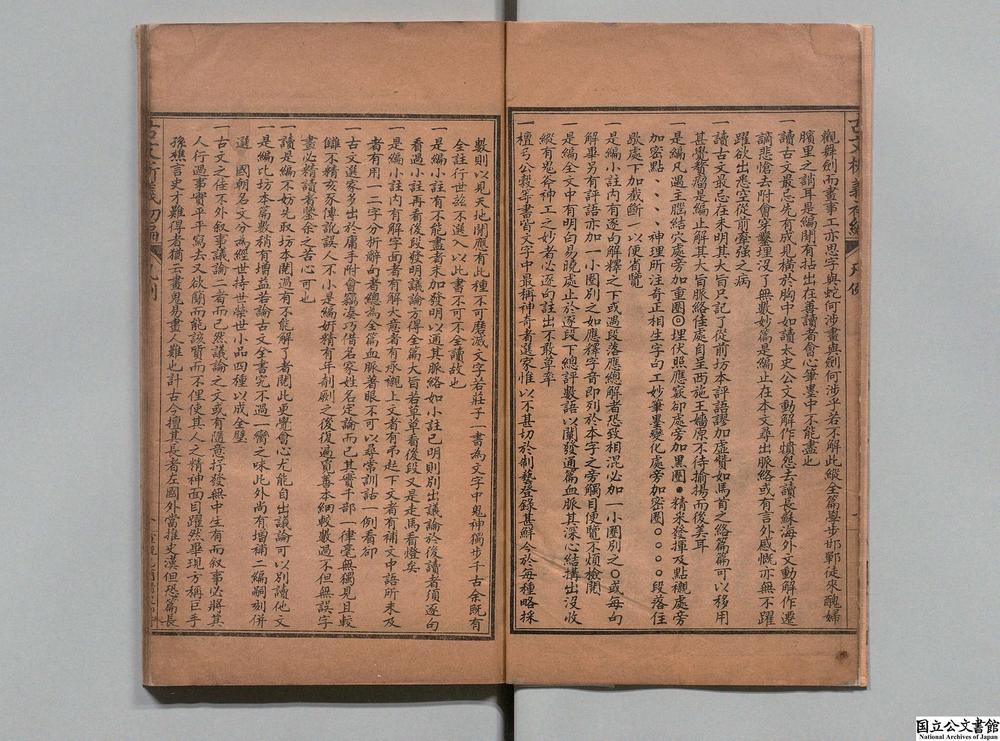 觀舞劍而畫事工亦思字與蛇何涉畫與劍何涉乎若不解此縱全篇學步邯鄲徒來醜婦
臏里之誚耳是編閒有拈出在善讀者會心筆墨中不能盡也
一讀古文最忌先有成見橫於胸中如讀太史公文動解作憤怨去讀長蘇海外文動解作遷
謫悲愴去附會穿鑿埋沒了無數妙篇是編止在本文尋出脈絡或有言外感慨亦無不躍
躍欲出悉空從前牽强之病
一讀古文最忌在未明其大旨只記了從前坊本評語謬加虛贊如馬首之絡篇篇可以移用
甚覺贅瘤是編止解其大旨脈絡佳處自呈西施王嬙原不待揄揚而後美耳
一是編凡遇主腦結穴處旁加重圈◎埋伏照應竅郤處旁加黑圈●精釆發揮及點襯處旁
加密點、、、、神理所注奇正相生字句工妙筆墨變化處旁加密圈○○○○段落住
歇處下加截斷一以便省覽
一是編小註內有逐句解釋之下或遇段落應總解者恐致相混必加一小圈別之○或每句
解畢另有評語亦加一小圈別之如應釋字音即列於本字之旁觸目便覽不煩檢閱
一是編全文中有明白易曉處止於逐段下總評數語以闡發通篇血脈其深心結構出沒收
縱有鬼斧神工之妙者必逐句註出不敢草率
一檀弓公穀等書皆文字中最稱神奇者選家惟以不甚切於制藝登錄甚鮮今於每種略採
古文析義初編
凡例
數則以見天地閒應有此種不可磨滅文字若莊子一書為文字中鬼神獨步千古余既有
全註行世茲不選入以此書不可不全讀故也
一是編小註有不能盡者末加發明以通其脈絡如小註已明則別出議論於後讀者須逐句
看過小註再看後段發明議論方得全篇大旨若草草看後段又是走馬看燈矣
一是編小註內有解字面者有解大意者有承襯上文者有弔起下文者有補文中語所未及
者有用一二字分析辭句者總為全篇血脈著眼不可以尋常訓詁一例看卻
一古文選家多出於庸手附會竊湊巧借名家姓名定論而已其實千部一律毫無獨見且較
讎不精亥豕傳訛誤人不小是編妍精有年剞劂之後復遍覓善本細較數過不但無誤字
畫必精讀者鑒余之苦心可也
一讀是編不妨先取坊本閱過有不能解了者閱此更覺會心尤能自出議論可以別讀他文
一是編比坊本篇數稍有增益若論古文全書究不過一臠之味此外尚有增補二編嗣刻併
選 國朝名文分為經世持世榮世小品四種以成全壁
一古文之任不外敘事議論二者而已然議論之文或有隨意抒發無中生有而敘事必將其
人行過事實平平寫去又欲簡而能該質而不俚使其人之精神面目躍然畢現方稱巨手
孫樵言史才難得者猶云畫鬼易畫人難也計古今擅其長者左國外當推史漢但恐篇長
国立公文書館
National Archives of Japan